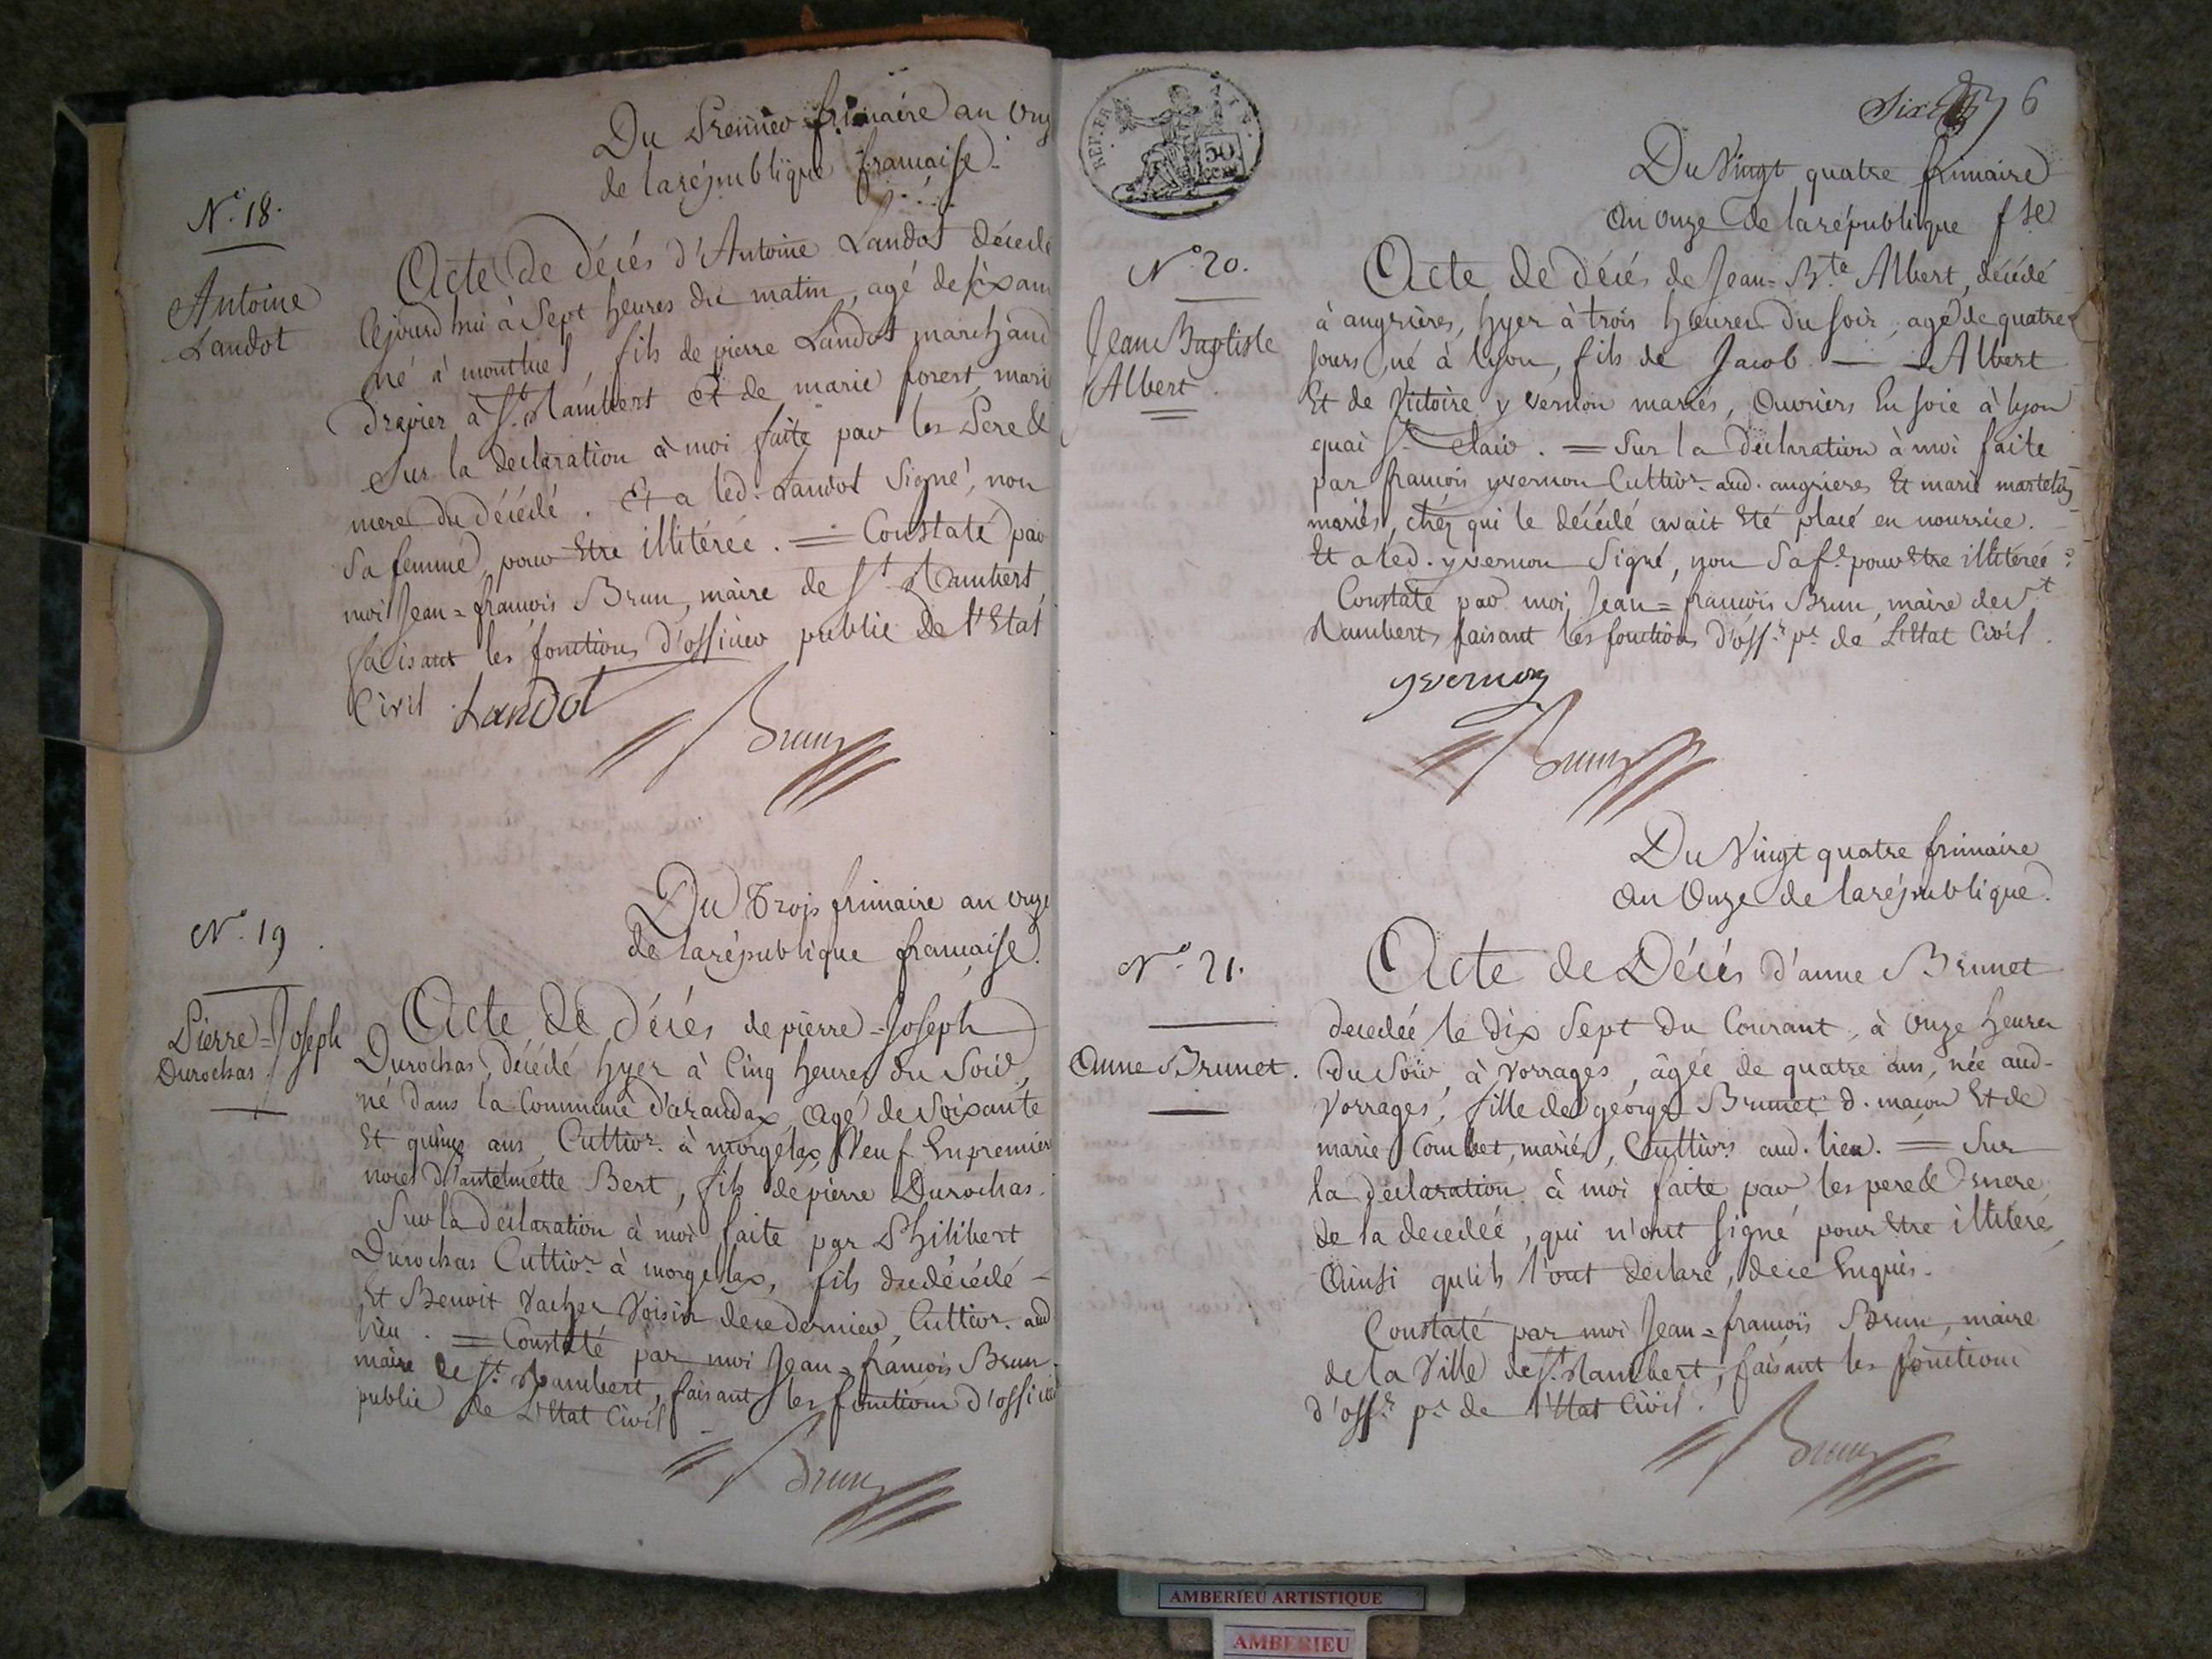 Du Premier frimaire an onz
de la république française.
N.° 18.
Antoine
Landot
Acte de décés d'Antoine Landot décedé
cejourd'hui à Sept heures du matin, agé de six ans
né à montluel, fils de pierre Landot marchand
Drapier à St. Rambert et de marie forest, mari
Sur la declaration à moi faite par les Pere &
mere du décédé. Et a led. Landot Signé, non
Sa femme, pour Etre illitérée. = Constaté par
moi Jean=françois Brun, maire de St Rambert,
faisant les fonctions d'officier public de l'Etat
Civil
Landot
Brun
Du Trois frimaire an onze
de la république française.
N.° 19
Pierre=Joseph
Durochas.
Acte de décés de pierre=Joseph
Durochas, décédé hyer à Cinq heures du Soir,
né dans la Commune d'arandax, agé de Soixante
Et quinze ans, Cultivr. à morgelax, Veuf En premier
noces d'antelmette Bert, fils de pierre Durochas.
Sur la déclaration à moi faite par Philibert
Durochas Cultivr. à morgelax, fils du décédé –
Et Benoit Vacher Voisin de ce dernier, Cultivr. aud
lieu. = Constaté par moi Jean=françois Brun
maire de St. Rambert, faisant les fonctions d'officier
public de L'Etat Civil
Brun
REP. FRA.
50
CENT.
Six 6
Du Vingt quatre frimaire
an onze de la république fse
N.° 20.
Jean Baptiste
Albert.
Acte de décés de Jean=Bte Albert, décédé
à angrières, hyer à trois heures du soir, agé de quatre
jours, né à lyon, fils de Jacob — Albert
Et de Victoire yvernon mariés, Ouvriers En soie à lyon
quai St. Clair. = Sur la déclaration à moi faite
par françois yvernon Cultivr. aud. angrieres Et marie martel
mariés, chéz qui le décédé avait Eté placé en nourrice.
Et a led. yvernon Signé, non Sa fe. pour Etre illitérée :
Constaté par moi, Jean=françois Brun, maire de St
Rambert, faisant les fonctions d'offr. pc. de L'Etat Civil.
yvernon
Brun
Du Vingt quatre frimaire
an Onze de la république.
N.° 21.
Anne Brunet.
Acte de Décés d'anne Brunet
decedée le dix Sept du Courant, à onze heures
du Soir, à Vorrages, âgée de quatre ans, née aud-
Vorrages, fille de george Brunet d. maçon Et de
marie Combet, mariés, Cultivrs aud. lieu. = Sur
la déclaration à moi faite par les pere & mere
de la decedée, qui n'ont Signé pour Etre illitérés,
Ainsi qu'ils l'ont déclaré, de ce Enquis.
Constaté par moi Jean=françois Brun, maire
de la Ville de St. Rambert, faisant les fonctions
d'offr. pc. de l'Etat Civil.
Brun
AMBERIEU ARTISTIQUE
AMBERIEU